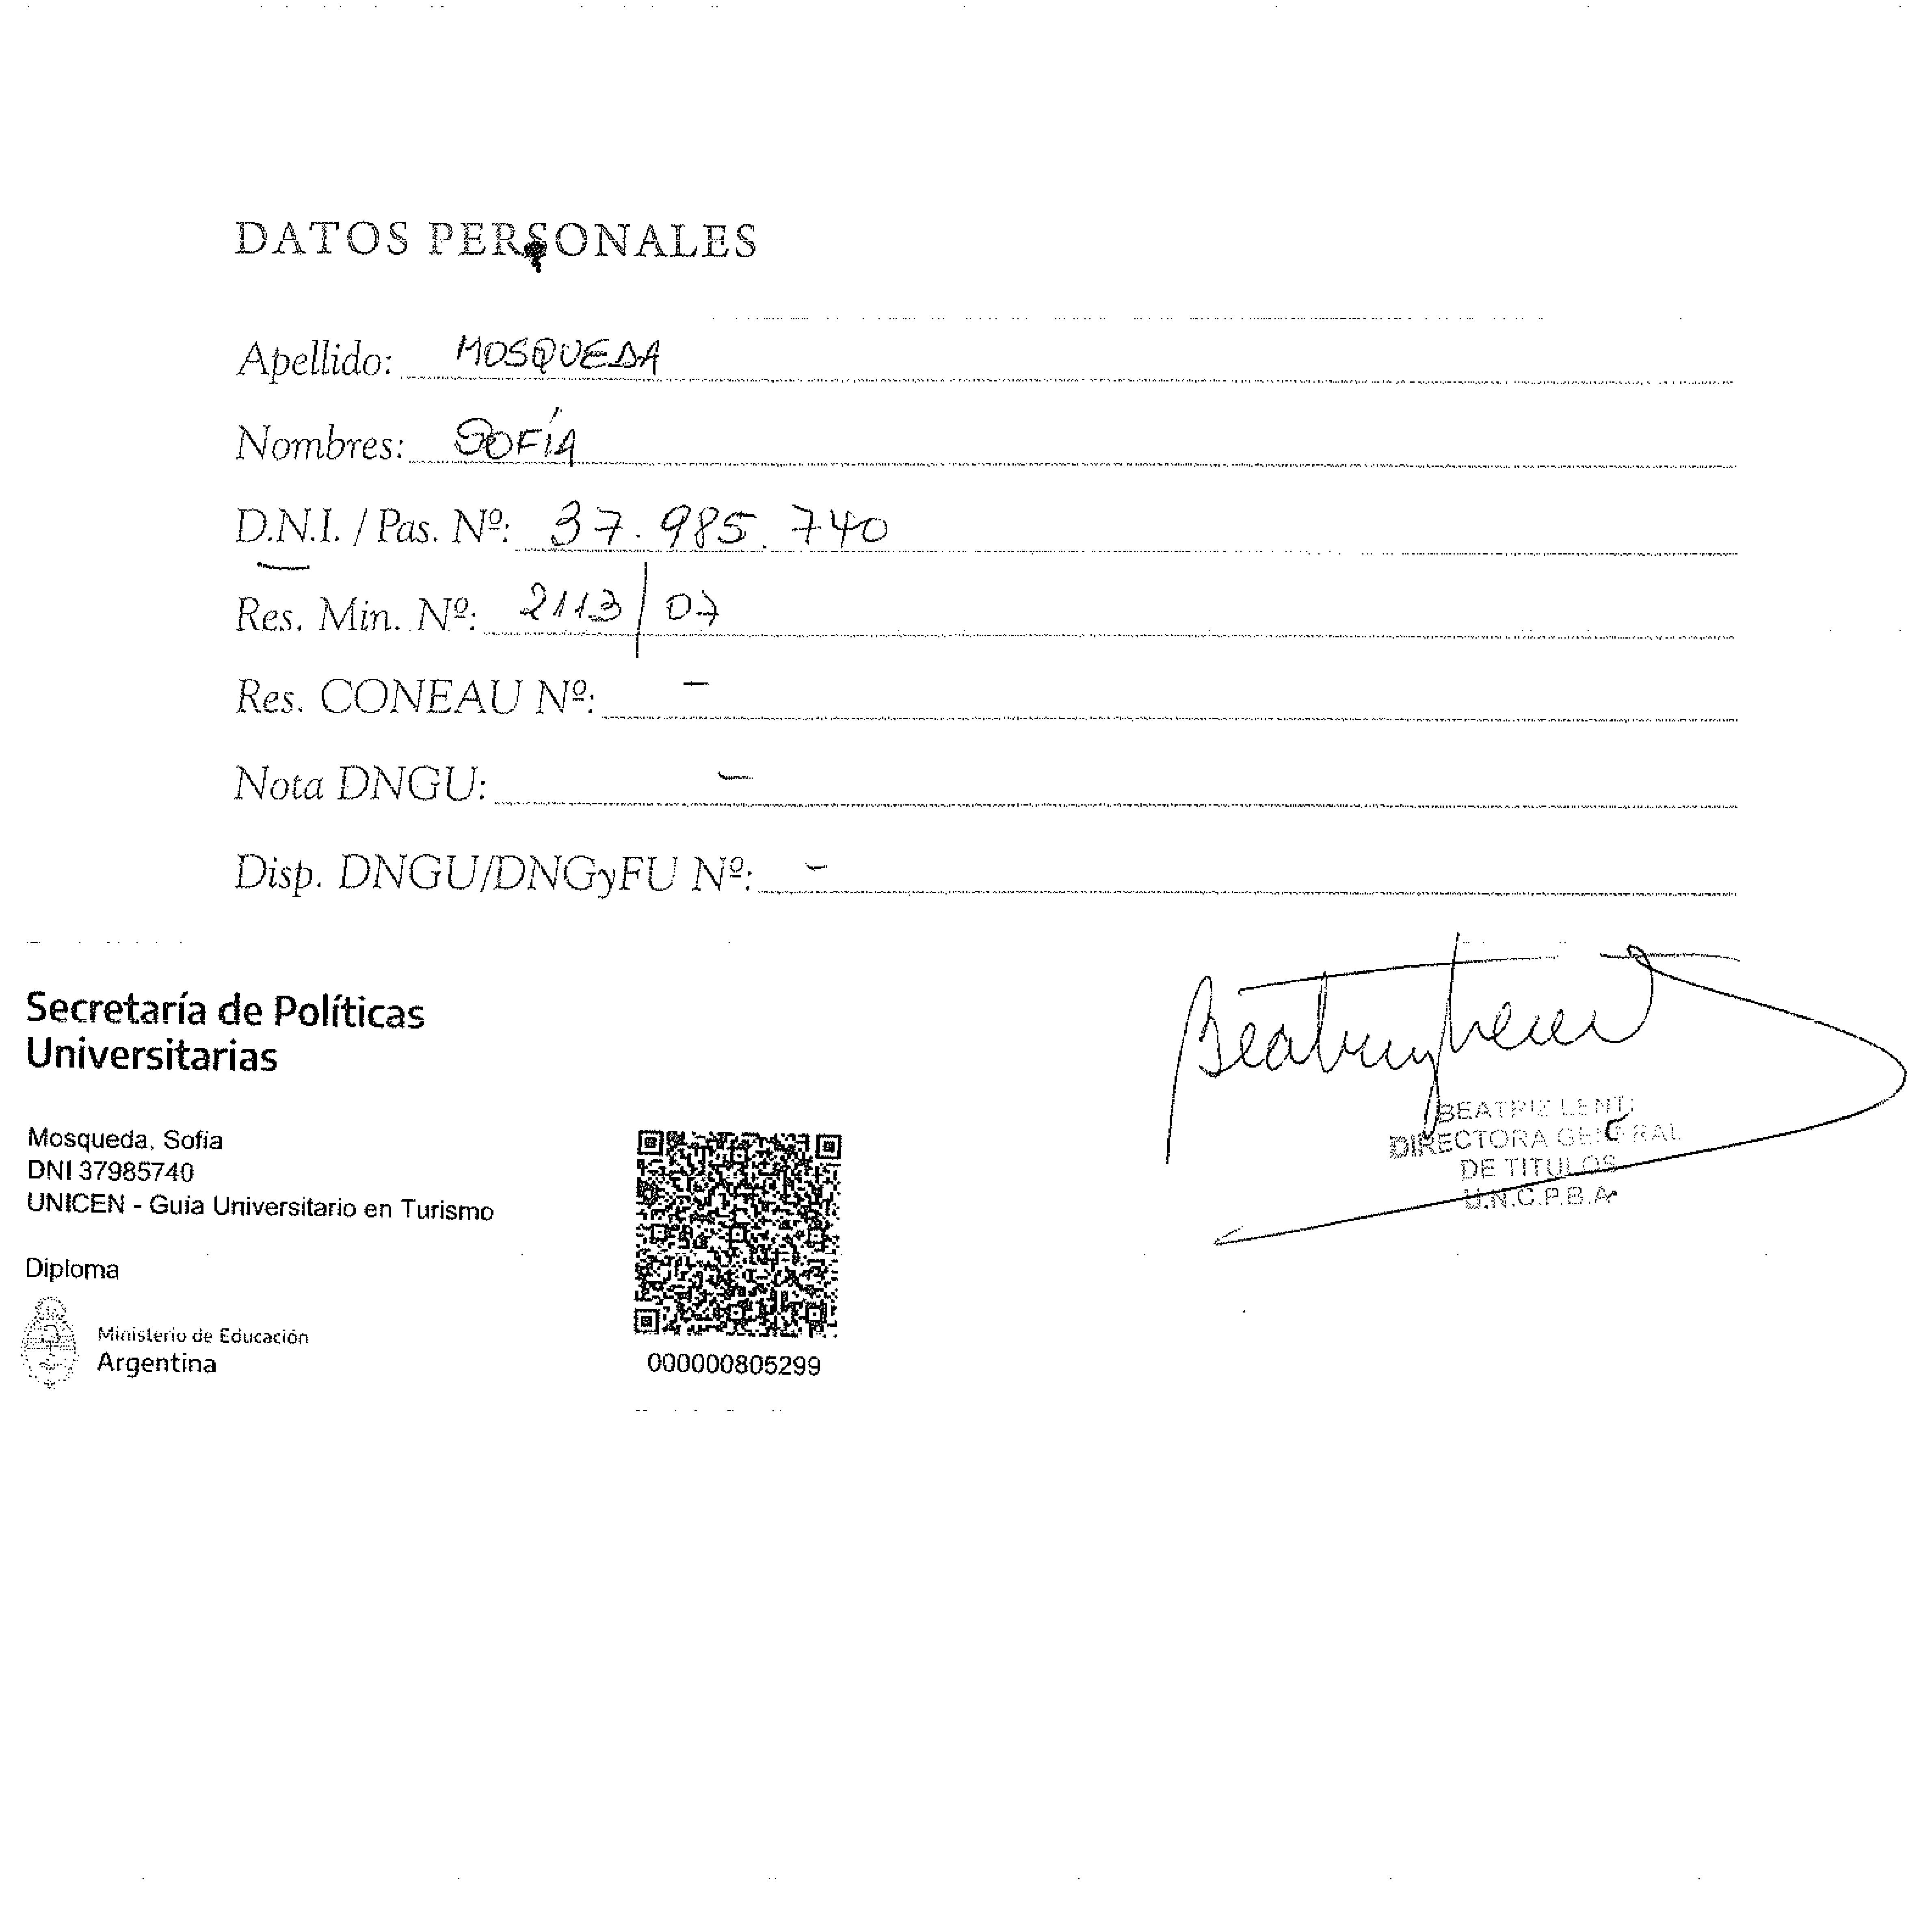 DATOS PERSONALES
Apellido: MOSQUEDA
Nombres: SOFÍA
D.N.I. / Pas. Nº: 37.985.740
Res. Min. Nº: 2113/07
Res. CONEAU Nº: -
Nota DNGU: -
Disp. DNGU/DNGyFU Nº: -
Secretaría de Políticas
Universitarias
Mosqueda, Sofia
DNI 37985740
UNICEN - Guía Universitario en Turismo
Diploma
Ministerio de Educación
Argentina
000000805299
BEATRIZ LENTI
DIRECTORA GENERAL
DE TITULOS
U.N.C.P.B.A.